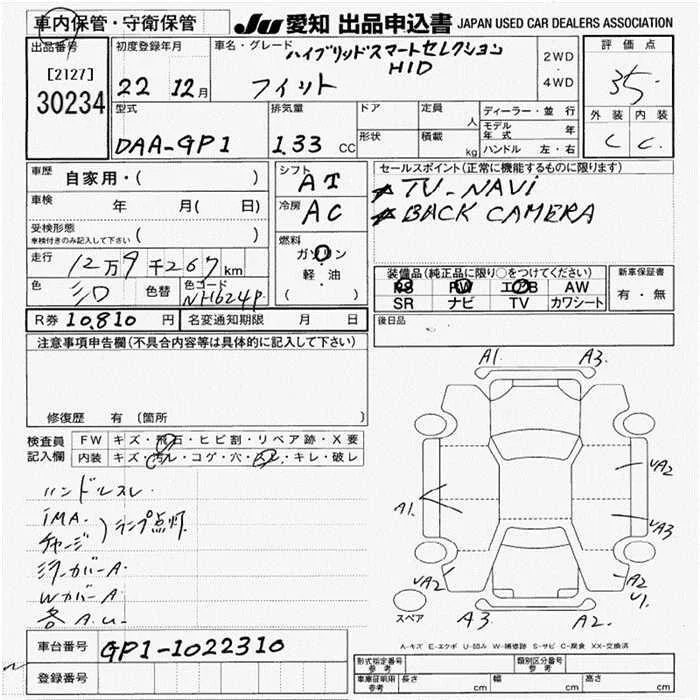 車内保管・守衛保管
JU 愛知 出品申込書 JAPAN USED CAR DEALERS ASSOCIATION
出品番号
[2127]
30234
初度登録年月
22 12月
車名・グレード
ハイブリッドスマートセレクション
HID
フィット
2WD
・
4WD
評価点
3.5
外装 内装
C C
型式
DAA-GP1
排気量
1.33 CC
ドア
形状
定員 人
積載 kg
ディーラー・並行
モデル年式 年
ハンドル 左・右
車歴 自家用・( )
車検 年 月( 日)
受検形態
車検付きのみ記入して下さい ( )
走行 12万9千267km
色 シロ 色替 色コード NH624P
シフト AT
冷房 AC
燃料
ガソリン
軽・油
( )
セールスポイント(正常に機能するものに限ります)
★TV-NAVi
★BACK CAMERA
装備品(純正品に限り○をつけてください)
PS PW エアB AW
SR ナビ TV カワシート
新車保証書
有・無
R券 10,810 円 名変通知期限 月 日
後日品
注意事項申告欄(不具合内容等は具体的に記入して下さい)
修復歴 有 (箇所 )
検査員記入欄
FW キズ・飛石・ヒビ割・リペア跡・X要
内装 キズ・汚レ・コゲ・穴・スレ・キレ・破レ
ハンドルスレ
iMA.
チャージ ) ランプ点灯.
ミラーカバーA.
WカバーA.
各A.U.
A1. A3.
UA2
A1.
UA3
UA2 A2
U1.
スペア A3 A2.
A-キズ E-エクボ U-凹み W-補修跡 S-サビ C-腐食 XX-交換済
車台番号 GP1-1022310
登録番号
形式指定番号 参考
類別区分番号 参考
車庫証明用 参考 長さ cm 幅 cm 高さ cm